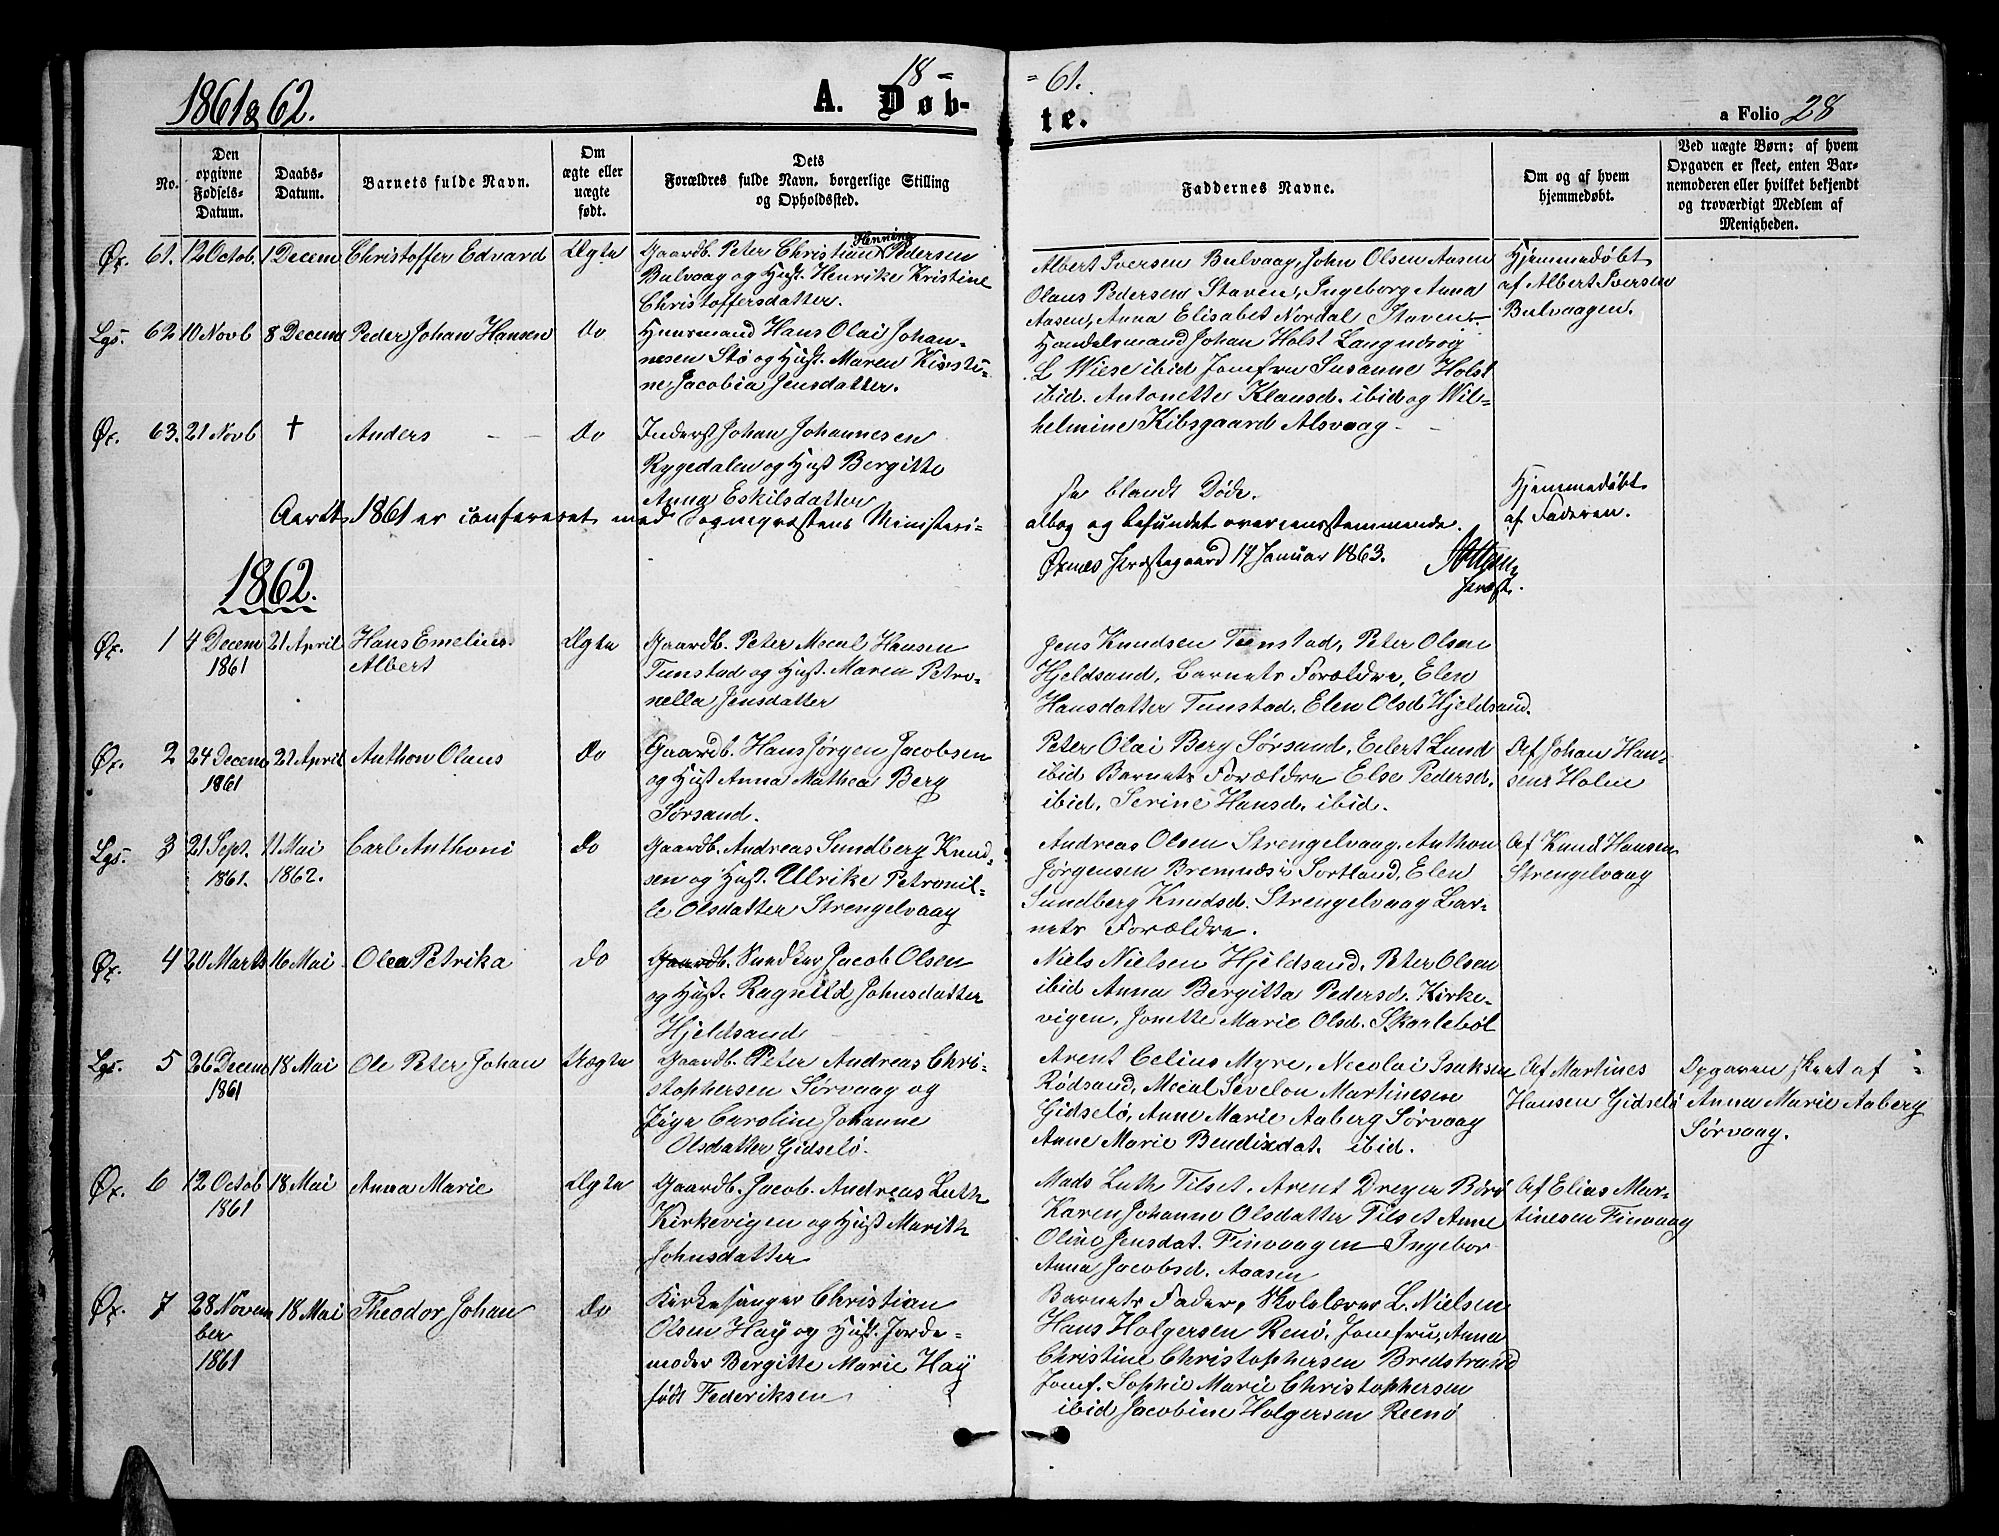 1861 & 62.
A. Døb-
18 -
- 61.
te.
a Folio 28
No.
Den opgivne Fødsels-Datum.
Daabs-Datum.
Barnets fulde Navn.
Om ægte eller uægte født.
Dets Forældres fulde Navn, borgerlige Stilling og Opholdssted.
Faddernes Navne.
Om og af hvem hjemmedøbt.
Ved uægte Børn: af hvem Opgaven er skeet, enten Barnemoderen eller hvilket bekjendt og troværdigt Medlem af Menigheden.
Øx. 61. 12 Octob. 1 Decem Christoffer Edvard Ægte
Gaardb. Peter Christian Henning Pedersen
Bulvaag og Hust. Henrike Kristine
Christoffersdatter.
Albert Iversen Bulvaag, John Olsen Aasen
Olaus Pedersen Staven, Ingeborg Anna
Aasen, Anna Elisabet Nordal Staven.
Hjemmedøbt
af Albert Iversen
Bulvaagen.
Lgs. 62 10 Novb 8 Decem Peder Johan Hansen do
Huusmand Hans Olai Johan-
nesen Stø og Hust. Maren Kirsti-
ne Jacobia Jensdatter.
Handelsmand Johan Holst Langndvig
L. Wiese ibid Jomfru Susanne Holst
ibid. Antonette Klausd. ibid og Wil-
helmine Kibsgaard Alsvaag - -
Øx. 63. 21 Novb † Anders - - do
Inderst Johan Johannesen
Rygedalen og Hust Bergitte
Anna Eskilsdatter
se blandt Døde.
Hjemmedøbt
af Faderen.
Aaret 1861 er confereret med Sognepræstens Ministeri-
albog og befundet overensstemmende.
Øxnes Præstegaard 17 Januar 1863.
Præst.
1862.
Øx. 1 4 Decem 1861 21 April Hans Emelius
Albert Ægte
Gaardb. Peter Mecal Hansen
Tunstad og Hust. Maren Petro-
nella Jensdatter
Jens Knudsen Tunstad, Peter Olsen
Hjeldsand, Barnets Forældre, Elen
Hansdatter Tunstad. Elen Olsd Hjeldsand.
Øx. 2 24 Decem 1861 21 April Anthon Olaus do
Gaardb. Hans Jørgen Jacobsen
og Hust Anna Mathea Berg
Sørsand.
Peter Olai Berg Sørsand, Eilert Lund
ibid Barnets Forældre Else Pedersd.
ibid, Serine Hansd. ibid.
Af Johan Han-
sens Holm
Lgs. 3 21 Sept. 1861. 11 Mai 1862. Carl Anthoni do
Gaardb. Andreas Sundberg Knud-
sen og Hust. Ulrike Petronil-
le Olsdatter Strengelvaag
Andreas Olsen Strengelvaag, Anthon
Jørgensen Bremnes i Sortland, Elen
Sundberg Knudsd. Strengelvaag Bar-
nets Forældre.
Af Knud Hansen
Strengelvaag
Øx. 4 20 Marts 16 Mai Olea Petrika do
Gaardb. Snedker Jacob Olsen
og Hust. Ragnild Johnsdatter
Hjeldsand
Niels Nielsen Hjeldsand, Peter Olsen
ibid Anna Bergitta Pedersd. Kirke-
vigen, Jonette Marie Olsd. Skarlebøl
Lgs. 5 26 Decem 1861 18 Mai Ole Peter Johan Uægte
Gaardb. Peter Andreas Chri-
stophersen Sørvaag og
Pige Caroline Johanne
Olsdatter Gidselø.
Arent Celius Myre, Nicolai Isaksen
Rødsand, Mecal Sevelon Martinesen
Gidselø, Anne Marie Aaberg Sørvaag
Anne Marie Bendixdat. ibid.
Af Martines
Hansen Gidselø
Opgaven skeet af
Anna Marie Aaberg
Sørvaag.
Øx. 6 12 Octob 1861 18 Mai Anna Marie Ægte
Gaardb. Jacob Andreas Luth
Kirkevigen og Hust Marith
Johnsdatter
Mads Luth Tilset. Arent Dreyer Børø
Karen Johanne Olsdatter Tilset Anne
Oline Jensdat. Finvaagen Ingebor
Anna Jacobsd. Aaasen
Af Elias Mar-
tinesen Finvaag
Øx. 7 28 Novem
ber
1861 18 Mai Theodor Johan do
Kirkesanger Christian
Olsen Høy og Hust. Jorde-
moder Bergitte Marie Høy
født Federiksen
Barnets Fader, Skolelærer L. Nielsen
Hans Holgersen Renø, Jomfru Anna
Christine Christophersen Bredstrand
Jomf. Sophie Marie Christophersen
ibid Jacobine Holgersen Reenø